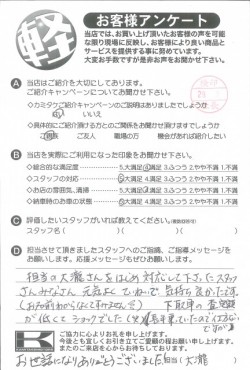 軽
お客様アンケート
当店では、お買い上げ頂いたお客様の声を可能
な限り現場に反映し、お客様により良い商品と
サービスを提供する事に努めています。
大変お手数ですが是非お声をお聞かせ下さい。
A 当店はご紹介を大切にしております。
ご紹介キャンペーンについてお聞かせ下さい。
◇カミタケご紹介キャンペーンのご説明はありましたでしょうか
はい いいえ
◇具体的にご紹介頂ける方とのご関係をお聞かせ頂けますでしょうか
ご親族 ご友人 職場の方 機会があれば紹介したい
B 当店を実際にご利用になった印象をお聞かせ下さい。
◇総合的な満足度 5.大満足 4.満足 3.ふつう 2.やや不満 1.不満
◇スタッフの対応 5.大満足 4.満足 3.ふつう 2.やや不満 1.不満
◇お店の雰囲気、清掃 5.大満足 4.満足 3.ふつう 2.やや不満 1.不満
◇納車時のお車の状態 5.大満足 4.満足 3.ふつう 2.やや不満 1.不満
C 評価したいスタッフがいれば教えてください。
スタッフ名( ) ( )
D 担当させて頂きましたスタッフへのご指摘、ご指導メッセージを
お願いします。もちろん、ご声援メッセージもお待ちしています。
担当の大瀧さんをはじめ対応して下さったスタッフ
さんみなさん、元気よくていねいで気持ち良かったです。
下取車の査定額
が低くてショックでした
ご協力に心よりお礼を申し上げます。
またのご来店を心からお待ちしております。
お世話になりありがとうございました!
担当( 大瀧